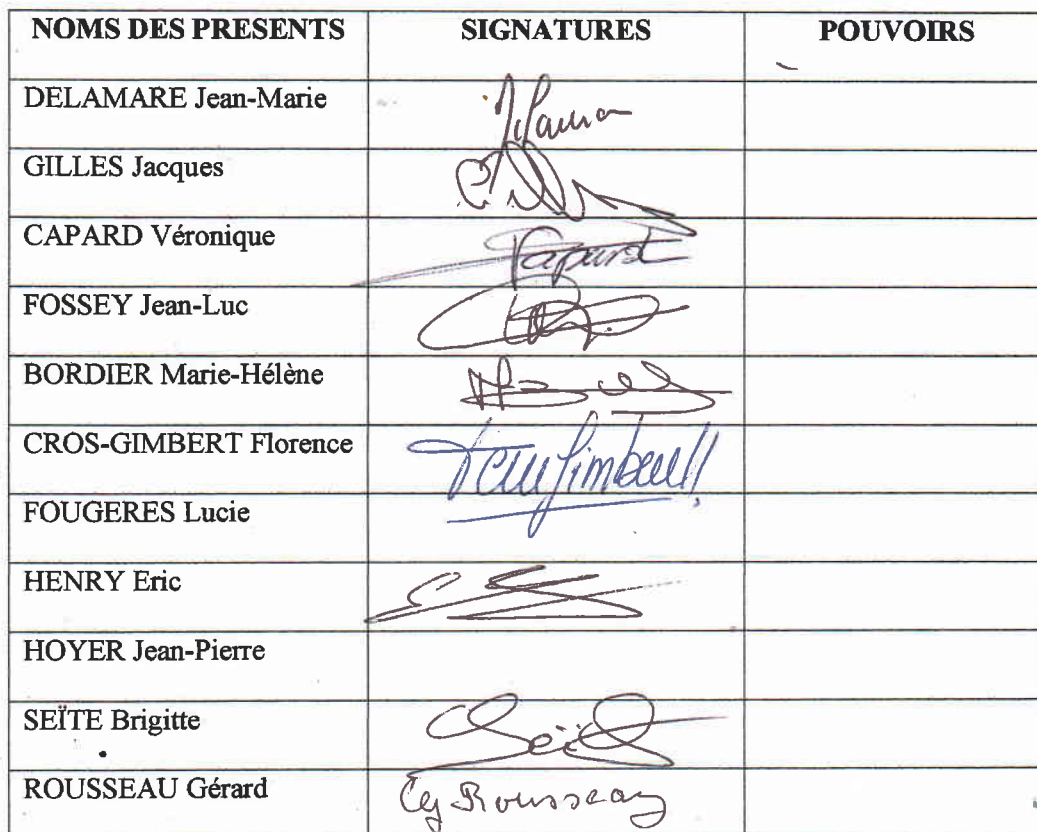 NOMS DES PRESENTS SIGNATURES POUVOIRS
DELAMARE Jean-Marie
GILLES Jacques
CAPARD Véronique Capard
FOSSEY Jean-Luc
BORDIER Marie-Hélène
CROS-GIMBERT Florence
FOUGERES Lucie
HENRY Eric
HOYER Jean-Pierre
SEÏTE Brigitte Seït
ROUSSEAU Gérard Rousseau